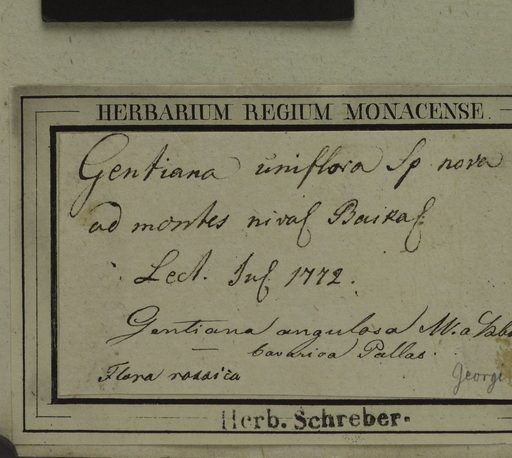 HERBARIUM REGIUM MONACENSE.
Gentiana uniflora Sp nova
ad montes nival Baikal
Lect. Jul 1772.
Gentiana angulosa M. a
bavarica Pallas.
Flora rossica
Georgi
Herb. Schreber.